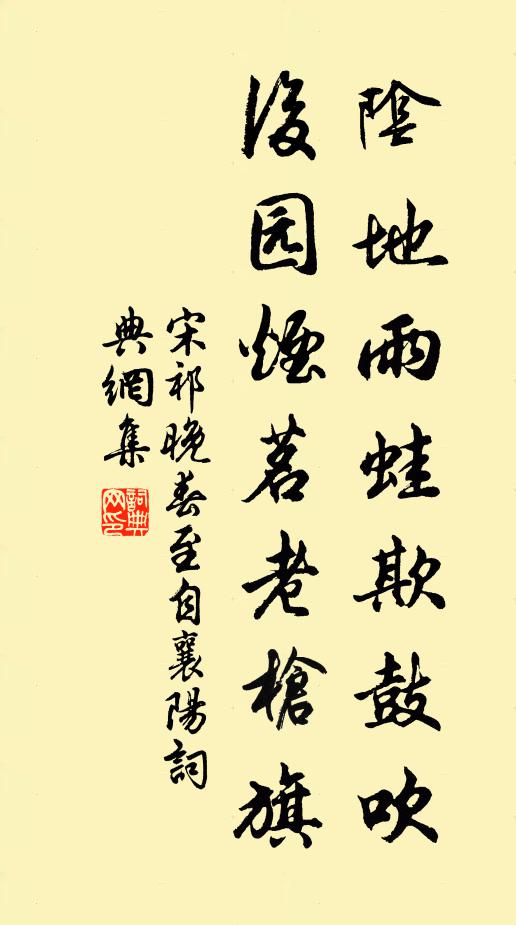 陰地雨蛙欺鼓吹
後园煙茗老槍旗
宋祁晚春至自襄陽詞
典網集
詞典網印